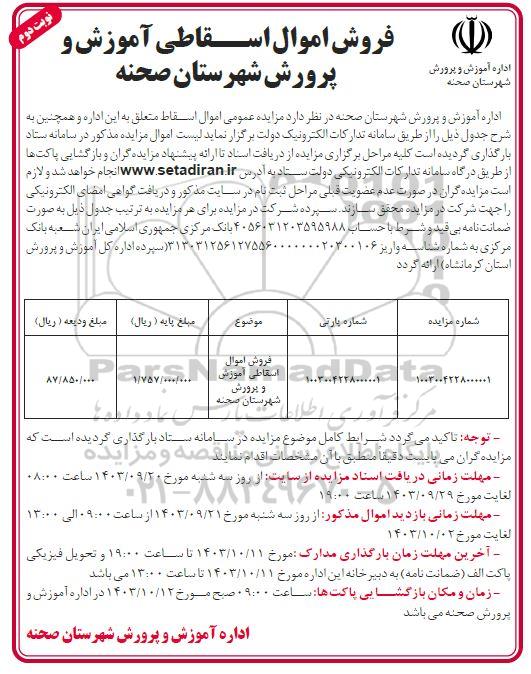 نوبت دوم
اداره آموزش و پرورش
شهرستان صحنه
فروش اموال اسقاطی آموزش و
پرورش شهرستان صحنه
اداره آموزش و پرورش شهرستان صحنه در نظر دارد مزایده عمومی اموال اسقاط متعلق به این اداره و همچنین به
شرح جدول ذیل را از طریق سامانه تدارکات الکترونیک دولت برگزار نماید لیست اموال مزایده مذکور در سامانه ستاد
بارگذاری گردیده است کلیه مراحل برگزاری مزایده از دریافت اسناد تا ارائه پیشنهاد مزایده‌گران و بازگشایی پاکت‌ها
از طریق درگاه سامانه تدارکات الکترونیکی دولت ستاد به آدرس www.setadiran.ir انجام خواهد شد و لازم
است مزایده‌گران در صورت عدم عضویت قبلی مراحل ثبت نام در سایت مذکور و دریافت گواهی امضای الکترونیکی
را جهت شرکت در مزایده محقق سازند. سپرده شرکت در مزایده برای هر مزایده به ترتیب جدول ذیل به صورت
ضمانت‌نامه بی‌قید و شرط یا حساب ۴۰۵۶۰۳۱۲۰۳۵۹۵۹۸۸ بانک مرکزی جمهوری اسلامی ایران شعبه بانک
مرکزی به شماره شناسه واریز (سپرده اداره کل آموزش و پرورش
استان کرمانشاه) ارائه گردد
شماره مزایده | شماره پارتی | موضوع | مبلغ پایه (ریال) | مبلغ ودیعه (ریال)
۱۰۰۳۰۰۴۲۲۸۰۰۰۰۰۱ | ۱۰۰۳۰۰۴۲۲۸۰۰۰۰۰۱ | فروش اموال اسقاطی آموزش و پرورش شهرستان صحنه | ۱/۷۵۷/۰۰۰/۰۰۰ | ۸۷/۸۵۰/۰۰۰
- توجه: تاکید می‌گردد شرایط کامل موضوع مزایده در سامانه ستاد بارگذاری گردیده است که
مزایده‌گران می بایست دقیقا منطبق با آن مشخصات اقدام نمایند
- مهلت زمانی دریافت اسناد مزایده از سایت: از روز سه شنبه مورخ ۱۴۰۳/۰۹/۲۰ ساعت ۰۸:۰۰
لغایت مورخ ۱۴۰۳/۰۹/۲۹ ساعت ۱۹:۰۰
- مهلت زمانی بازدید اموال مذکور: از روز سه شنبه مورخ ۱۴۰۳/۰۹/۲۱ از ساعت ۰۹:۰۰ الی ۱۳:۰۰
لغایت مورخ ۱۴۰۳/۱۰/۰۲
- آخرین مهلت زمان بارگذاری مدارک: مورخ ۱۴۰۳/۱۰/۱۱ تا ساعت ۱۹:۰۰ و تحویل فیزیکی
پاکت الف (ضمانت نامه) به دبیرخانه این اداره مورخ ۱۴۰۳/۱۰/۱۱ تا ساعت ۱۳:۰۰ می باشد
- زمان و مکان بازگشایی پاکت‌ها: ساعت ۰۹:۰۰ صبح مورخ ۱۴۰۳/۱۰/۱۲ در اداره آموزش و
پرورش صحنه می باشد
اداره آموزش و پرورش شهرستان صحنه
ParsNamadData